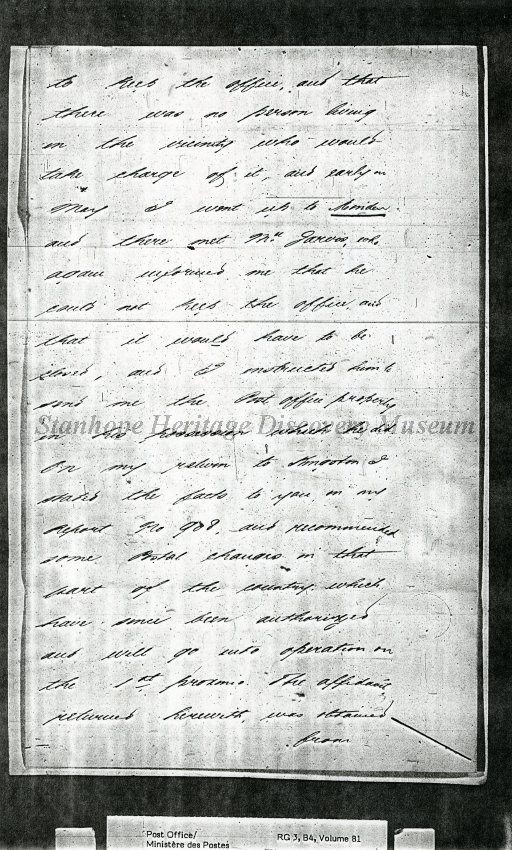 to keep the office, and that
there was no person living
in the vicinity who would
take charge of it, and early in
May I went up to Minden
and there met Mr Jarvis, who
again informed me that he
could not keep the office, and
that it would have to be
closed, and I instructed him to
send me the Post office property
in his possession which he did
On my return to Kingston I
stated the facts to you in my
Report No 908, and recommended
some Postal changes in that
part of the country which
have since been authorized
and will go into operation on
the 1st proximo. The affidavit
returned herewith was obtained
from
Stanhope Heritage Discovery Museum
Post Office/
Ministère des Postes
RG 3, B4, Volume 81